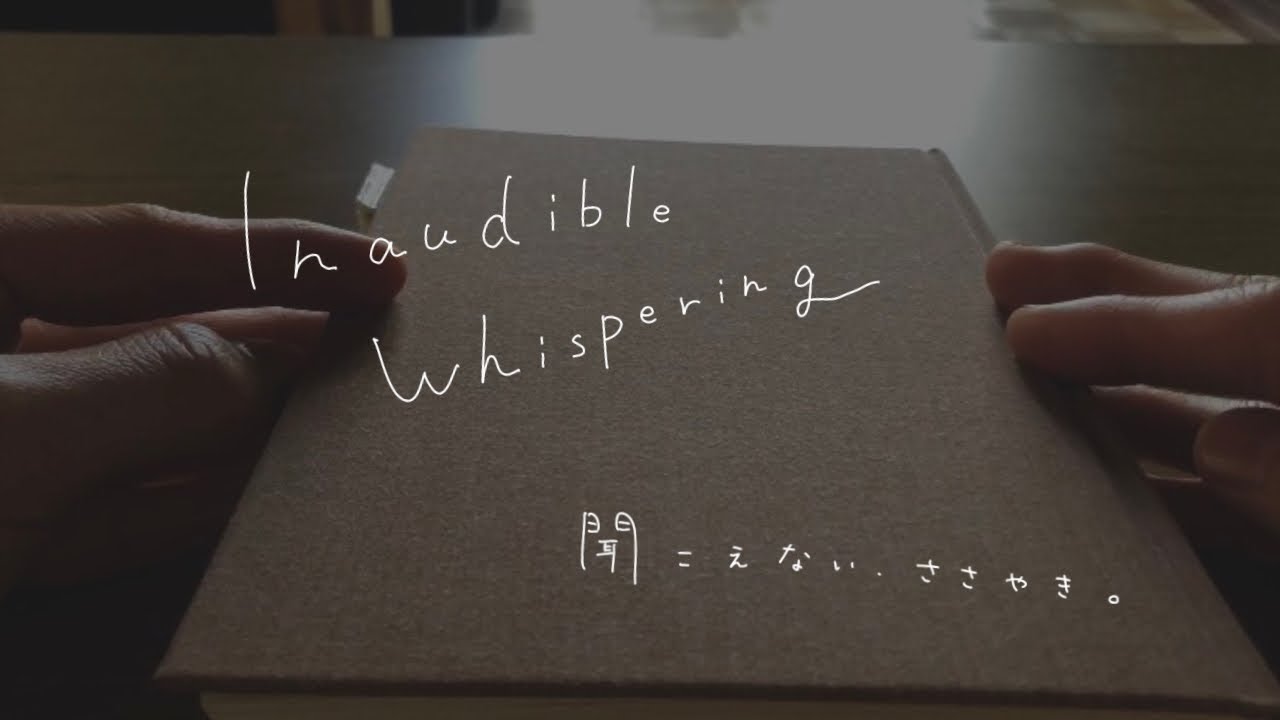 Inaudible
whispering
聞こえない.ささやき。